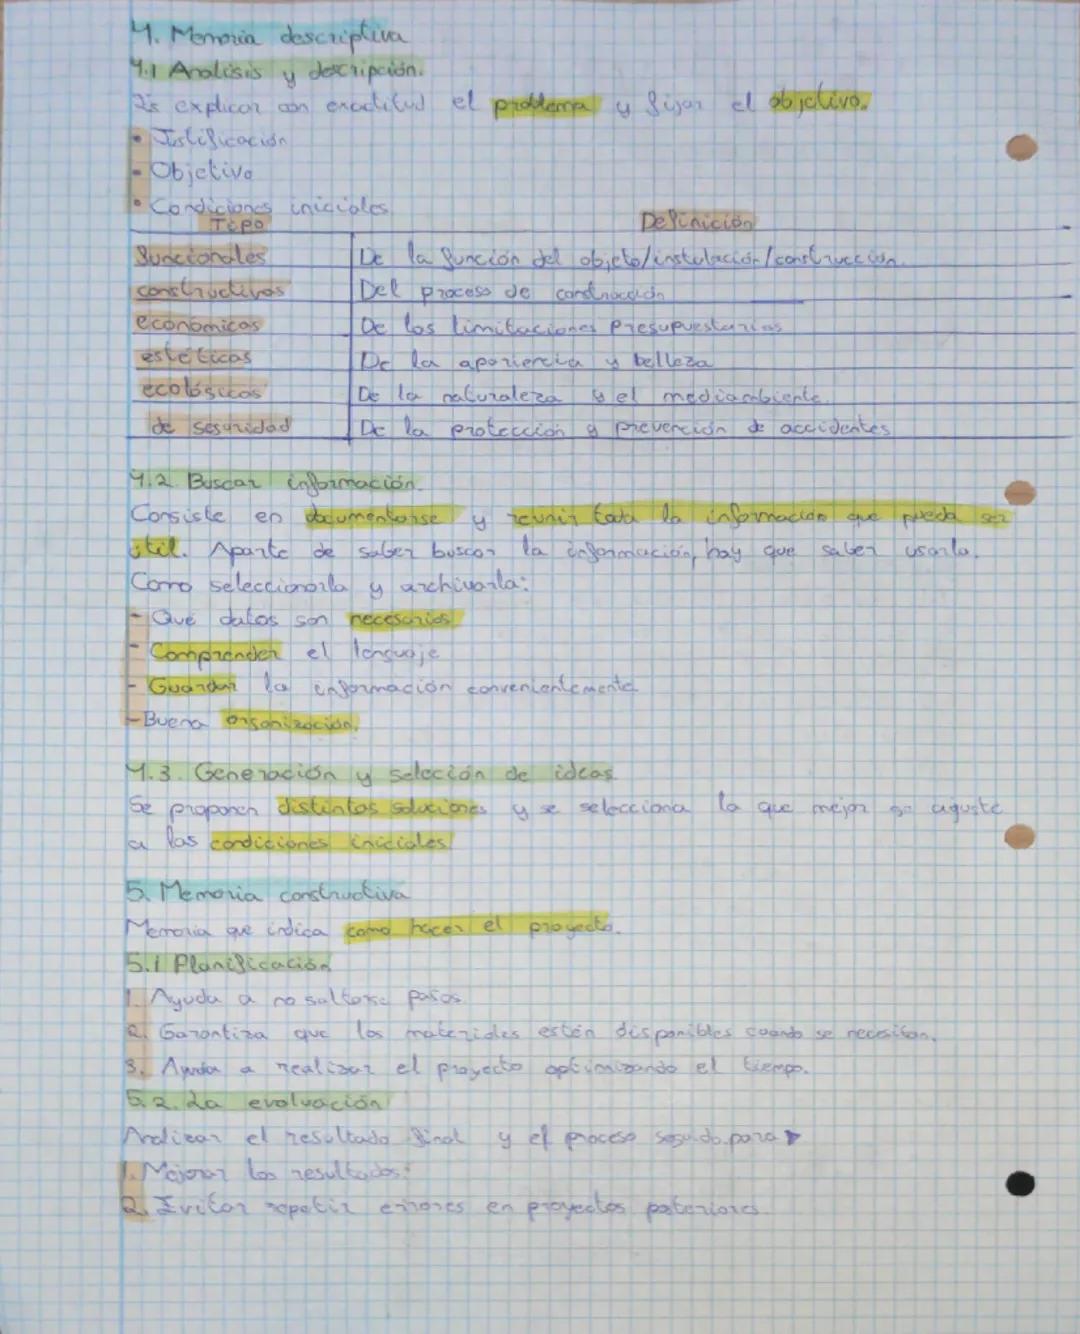 4. Memoria descriptiva
4.1 Analisis y descripción.
Es explicar con exactitud el problema y fijar el objetivo.
• Justificación
• Objetivo
• Condiciones iniciales
Tipo Definición
funcionales De la función del objeto/instalación/construcción.
constructivas Del proceso de construcción
económicas De las limitaciones presupuestarias
estéticas De la apariencia y belleza
ecológicas De la naturaleza y el mediambiente.
de seguridad De la protección y prevención de accidentes
4.2. Buscar información.
Consiste en documentarse y reunir toda la información que pueda ser
útil. Aparte de saber buscar la información, hay que saber usarla.
Como seleccionarla y archivarla:
- Qué datos son necesarios
- Comprender el lenguaje
- Guardar la información convenientemente
- Buena organización.
4.3. Generación y selección de ideas
Se proponen distintas soluciones y se selecciona la que mejor se aguste
a las condiciones iniciales
5. Memoria constructiva
Memoria que indica como hacer el proyecto.
5.1 Planificación
1. Ayuda a no saltarse pasos
2. Garantiza que los materiales estén disponibles cuando se necesitan.
3. Ayuda a realizar el proyecto optimizando el tiempo.
5.2. La evaluación
Analizar el resultado final y el proceso seguido para
1. Mejorar los resultados.
2. Evitar repetir errores en proyectos posteriores.